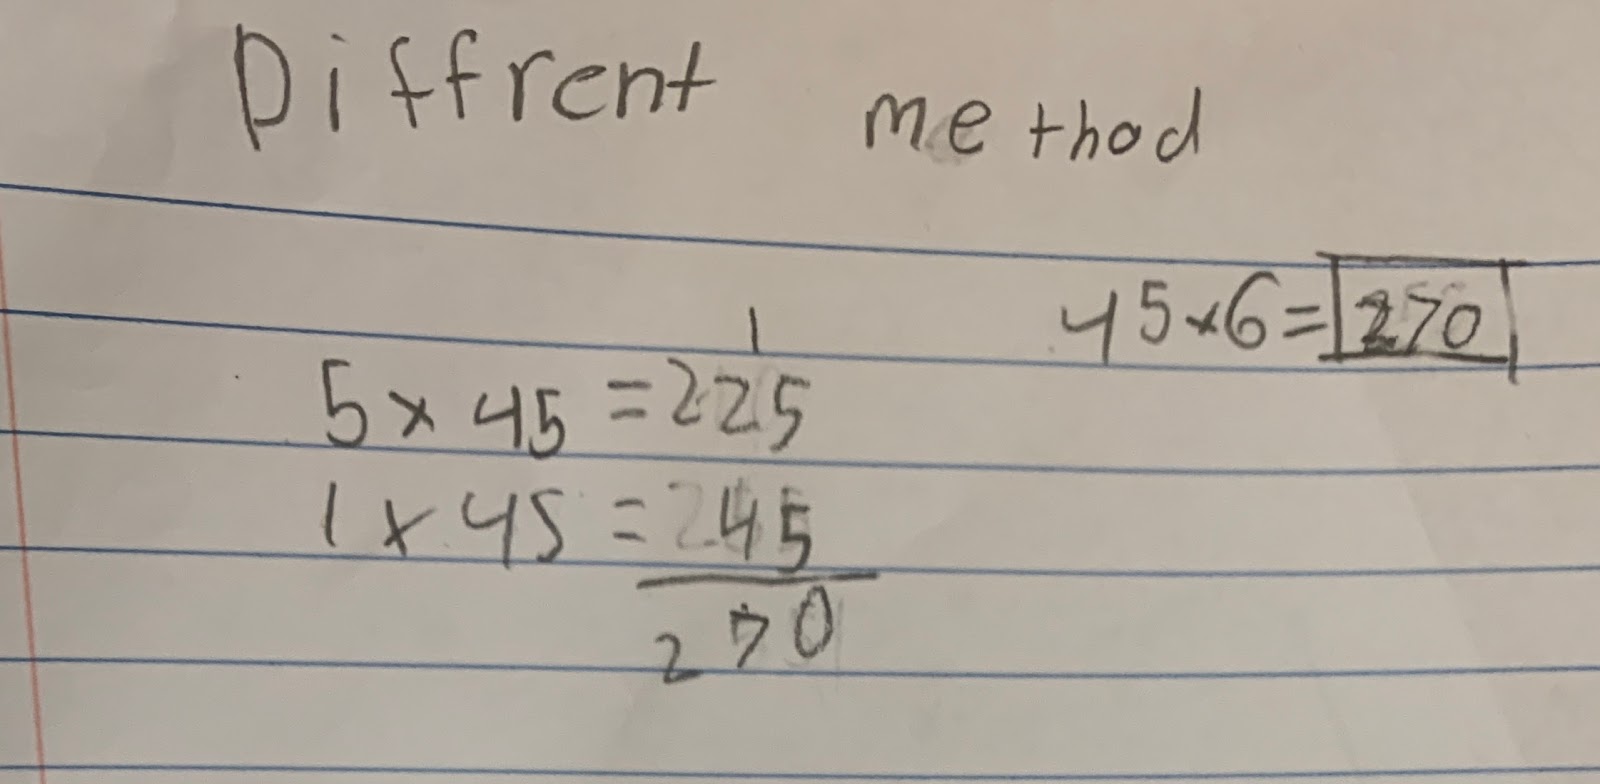 Diffrent method
45×6=270
1
5 × 45 =225
1 × 45 = 45
270